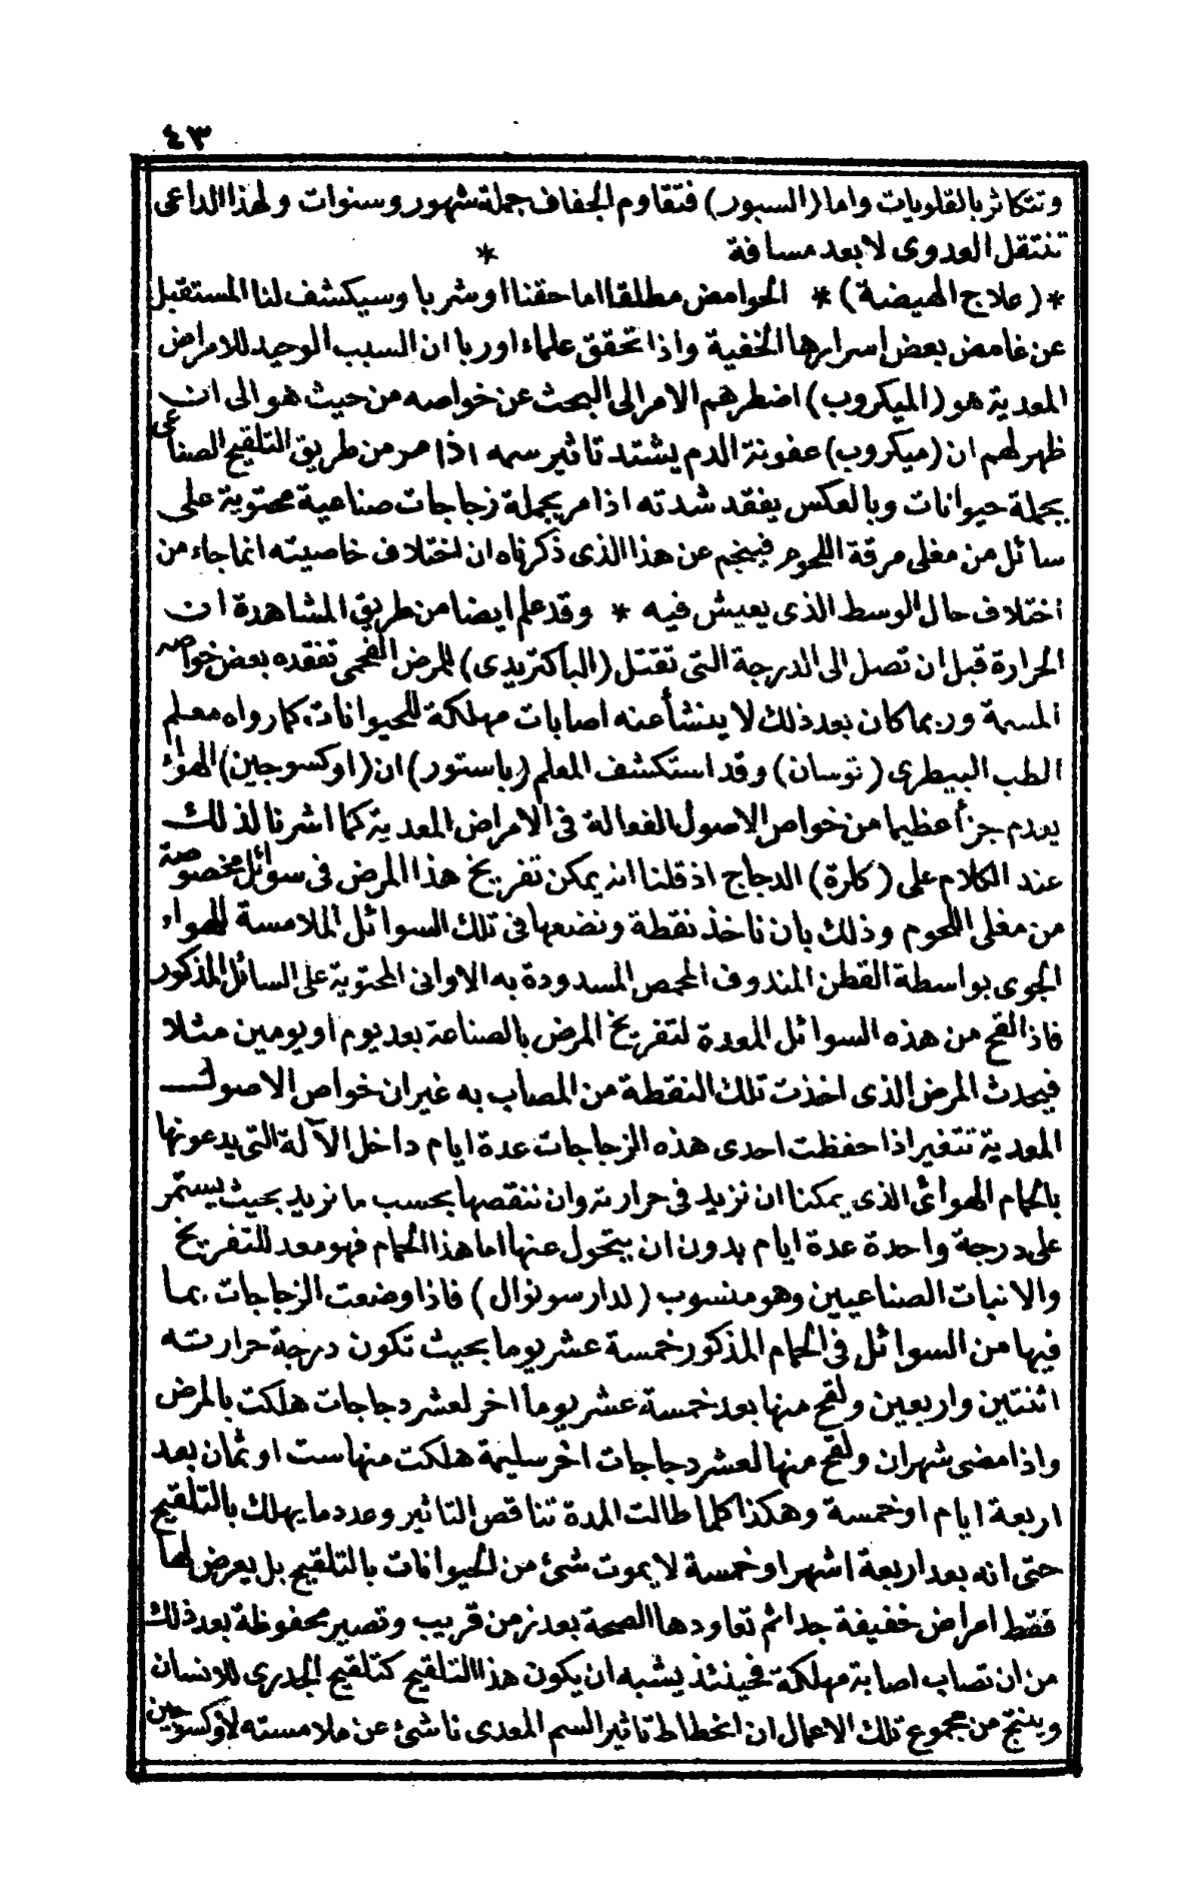 ٤٣
وتتكاثر بالقلويات واما (السبور) فتقاوم الجفاف جملة شهور وسنوات ولهذا الداعى
تنتقل العدوى لابعد مسافة *
* (علاج الهيضة) * الحوامض مطلقا اما حقنا او شربا وسيكشف لنا المستقبل
عن غامض بعض اسرارها الخفية واذا تحقق علماء اوربا ان السبب الوحيد للامراض
المعدية هو (الميكروب) اضطرهم الامر الى البحث عن خواصه من حيث هو الى ان
ظهر لهم ان (ميكروب) عفونة الدم يشتد تاثير سمه اذا مر من طريق التلقيح الصناعى
بجملة حيوانات وبالعكس يفقد شدته اذا مر بجملة زجاجات صناعية محتوية على
سائل من مغلى مرقة اللحوم فينجم عن هذا الذى ذكرناه ان اختلاف خاصيته انما جاء من
اختلاف حال الوسط الذى يعيش فيه * وقد علم ايضا من طريق المشاهدة ان
الحرارة قبل ان تصل الى الدرجة التى تقتل (الباكتريدى) للمرض الفحمى تفقده بعض خواصه
المسمة وربما كان بعد ذلك لا ينشأ عنه اصابات مهلكة للحيوانات، كما رواه معلم
الطب البيطرى (توسان) وقد استكشف المعلم (باستور) ان (اوكسوجين) الهواء
يعدم جزأ عظيما من خواص الاصول الفعالة فى الامراض المعدية كما اشرنا لذلك
عند الكلام على (كلرة) الدجاج اذ قلنا انه يمكن تفريخ هذا المرض فى سوائل مخصوصة
من مغلى اللحوم وذلك بان ناخذ نقطة ونضعها فى تلك السوائل الملامسة للهواء
الجوى بواسطة القطن المندوف المحمص المسدودة به الاوانى المحتوية على السائل المذكور
فاذا لقح من هذه السوائل المعدة لتفريخ المرض بالصناعة بعد يوم او يومين مثلا
فيحدث المرض الذى اخذت تلك النقطة من المصاب به غير ان خواص الاصول
المعدية تتغير اذا حفظت احدى هذه الزجاجات عدة ايام داخل الآلة التى يدعونها
بالحمام الهوائى الذى يمكننا ان نزيد فى حرارته وان ننقصها بحسب ما نريد بحيث يستمر
على درجة واحدة عدة ايام بدون ان يتحول عنها اما هذا الحمام فهو معد للتفريخ
والانبات الصناعيين وهو منسوب (لدارسونوال) فاذا وضعت الزجاجات بما
فيها من السوائل فى الحمام المذكور خمسة عشر يوما بحيث تكون درجة حرارته
اثنتين واربعين ولقح منها بعد خمسة عشر يوما اخر لعشر دجاجات هلكت بالمرض
واذا مضى شهران ولقح منها لعشر دجاجات اخر سليمة هلكت منها ست او ثمان بعد
اربعة ايام او خمسة وهكذا كلما طالت المدة تناقص التاثير وعدد ما يهلك بالتلقيح
حتى انه بعد اربعة اشهر او خمسة لا يموت شئ من الحيوانات بالتلقيح بل يعرض لها
فقط امراض خفيفة جدا ثم تعاودها الصحة بعد زمن قريب وتصير محفوظة بعد ذلك
من ان تصاب اصابة مهلكة فحينئذ يشبه ان يكون هذا التلقيح كتلقيح الجدرى للانسان
وينتج من مجموع تلك الاعمال ان انحطاط تاثير السم المعدى ناشئ عن ملامسته لاوكسوجين